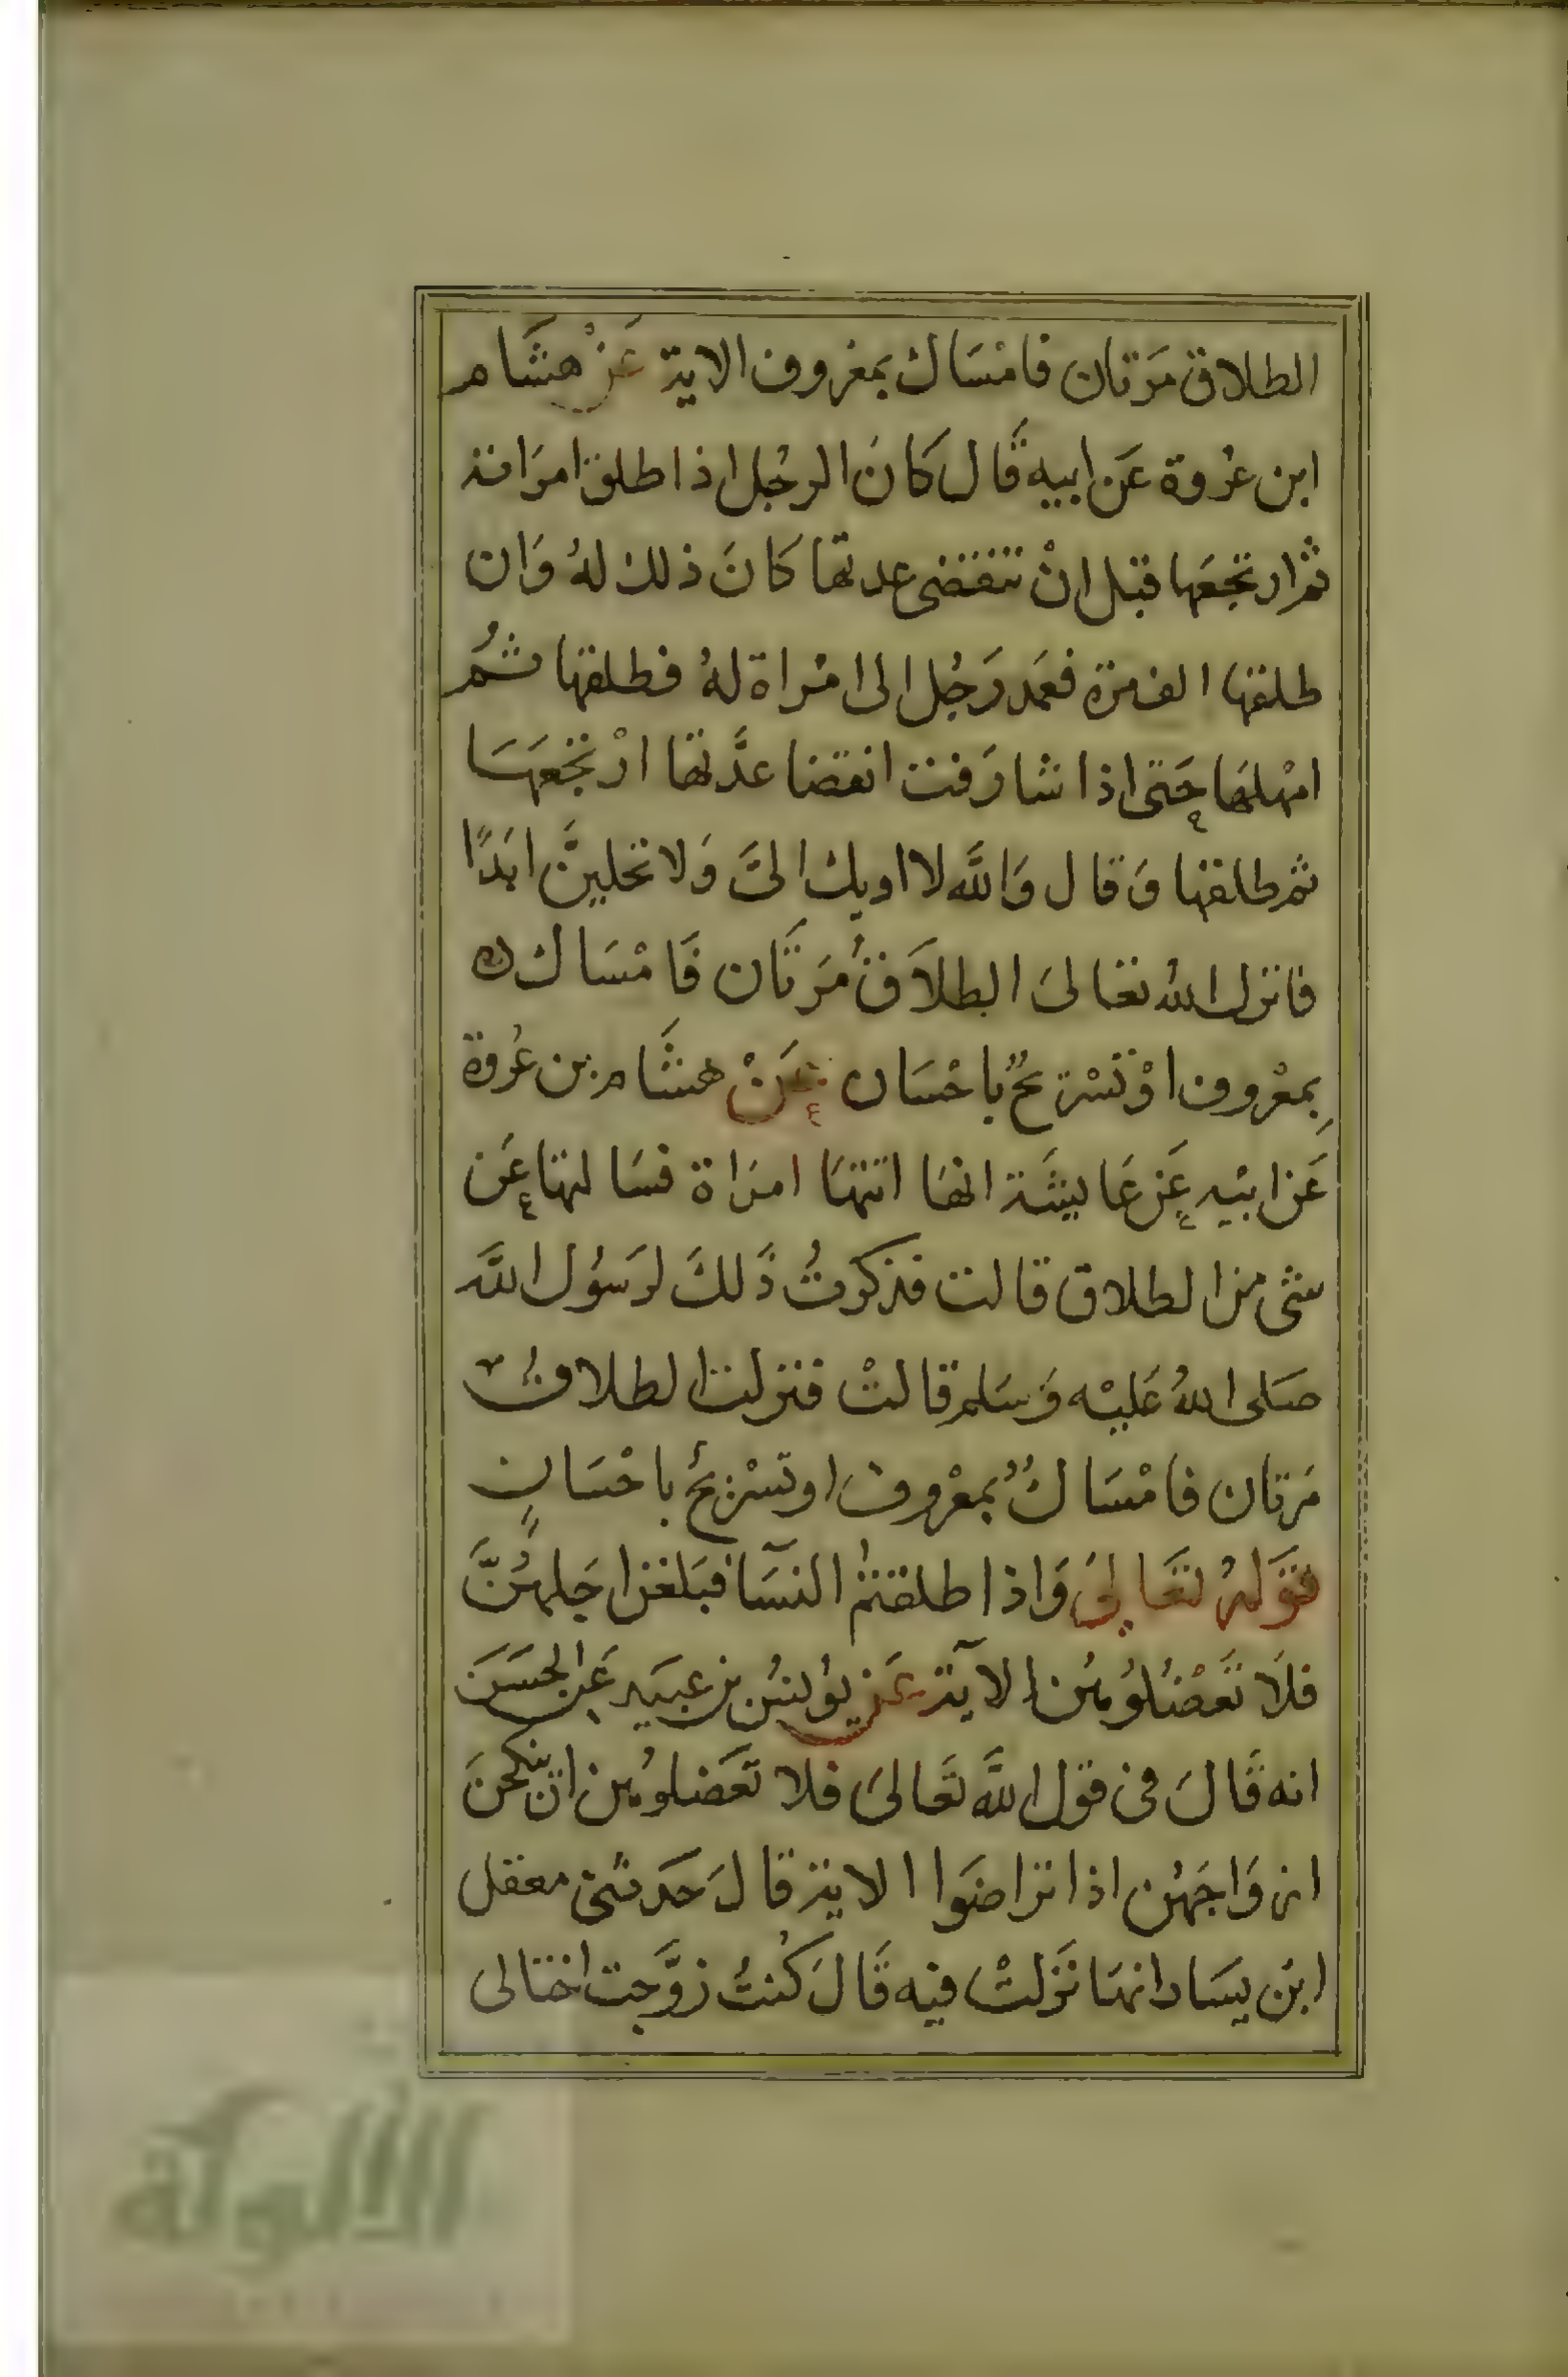 الطلاق مَرتان فامْسَاك بمعروف الاية عَنْ هشَام
ابن عُروة عَن ابيه قَال كَانَ الرجُل اذا طلق امرَاته
ثم ارتجعَها قبل انْ تنقضى عدتها كانَ ذلك لهُ وَان
طلقها الف مرة فعَمد رَجُل الى امْراة لهُ فطلقها ثُم
امْهلهَا حَتى اذا شارَفت انقضا عدَّتها ارْتجعَهَا
ثم طلقها وَقال وَاللَّه لا اويك الىَّ وَلا تحلينَّ ابَدًا
فانزل اللهُ تعَالىَ الطلاَقُ مَرتَان فَامْسَاك
بِمعْروف اوْ تسْريحٌ باحْسَان عَنْ هشَام بن عُروة
عَن ابيْه عَن عَايشَة انهَا اتتهَا امرَاة فسَالتها عَن
شى من الطلاق قالت فذكرتُ ذَلكَ لرَسُول اللَّه
صَلى اللهُ عَليْه وَسَلم قالتْ فنزلت الطلاقُ
مَرتان فامْسَاكٌ بمعْروف اوتسْريحٌ باحْسَانٍ
قوَلهُ تعَالىَ وَاذا طلقتمُ النسَآ فبَلغن اجَلهُنَّ
فلاَ تَعْضُلُوهُن الآية عَن يُونسُ بن عبيَد عَن الحسَن
انه قَالَ فى قول اللَّه تَعَالىَ فلا تعَضلوهُن ان ينكحْنَ
ازوَاجَهُن اذا تراضَوا الاية قالَ حَدثنى معقل
ابن يسَار انهَا نَزلتْ فيه قَالَ كُنتُ زوَّجت اختا لى
الألوكة